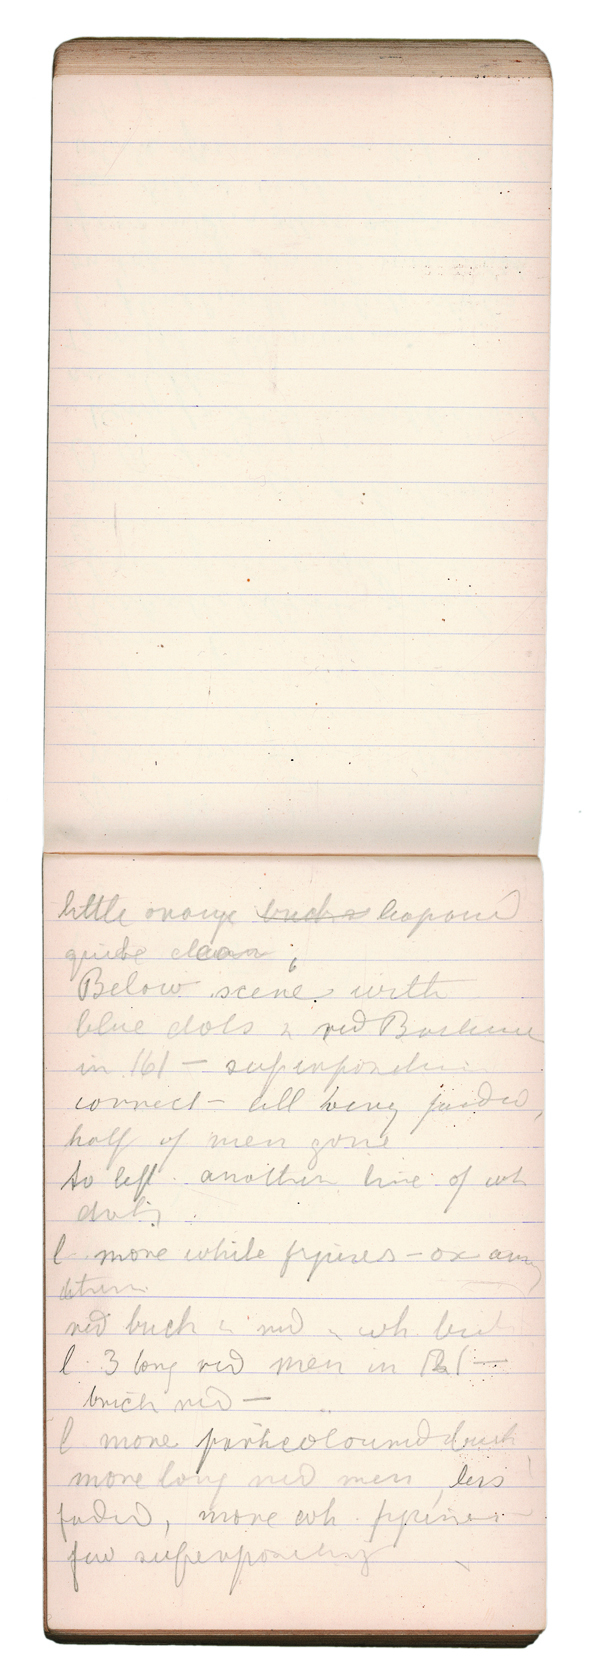 little orange bucks leopard
quite clear
Below scene with
blue dots & red Bushmen
in 161 — superposition
correct — all being faded,
half of men gone
to left another line of wh
dots
l more white figures — ox among
them
red buck & red & wh. buck
l 3 long red men in
brick red —
l more particoloured buck
more long red men, less
faded, more wh. figures
few superposed